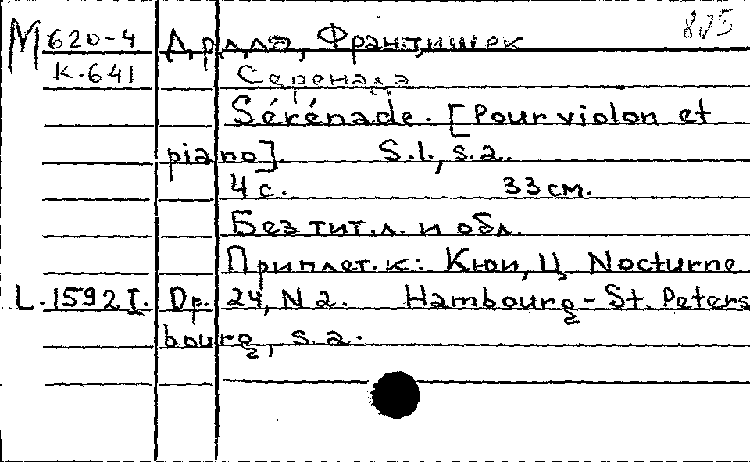 М 620-4 Дрдла, Франтишек 805
к. 641 Серенада
Sérénade. [Pour violon et
piano]. S.l., s.a.
4 с. 33 см.
Без тит.л. и обл.
Приплет. к: Кюи, Ц. Nocturne
L. 1592 I. Op. 24, N 2. Hambourg - St. Peters
bourg, s.a.